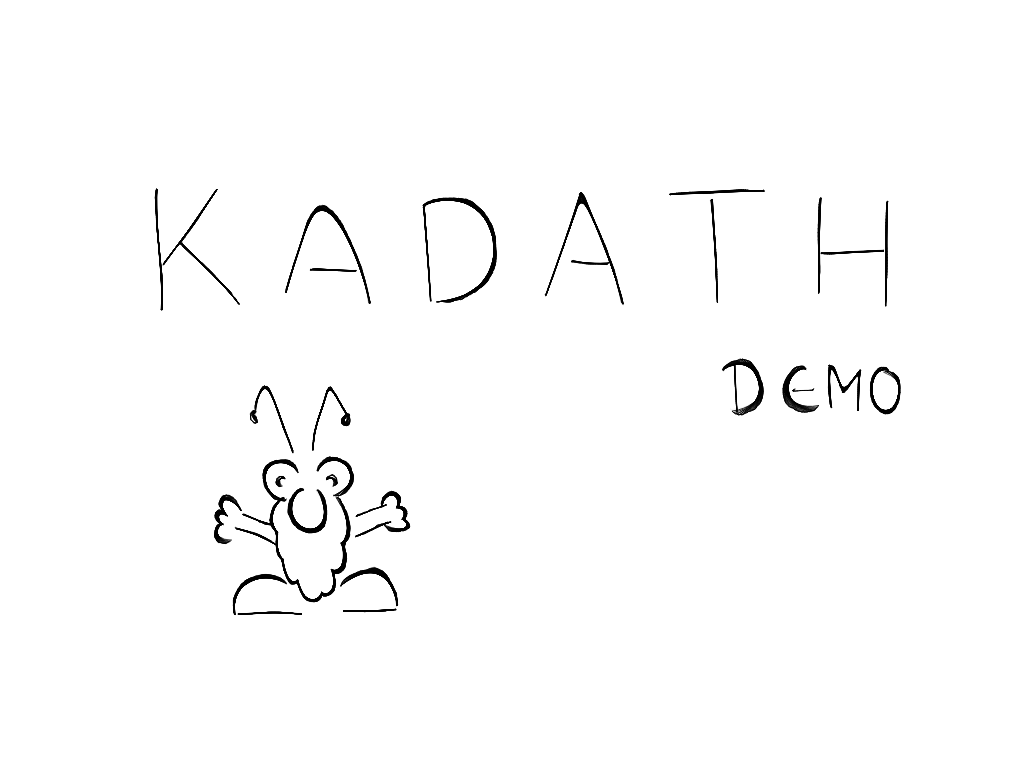 KADATH
DEMO